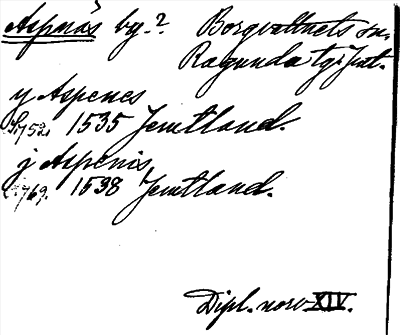 Aspnäs by.? Borgvattnets sn.
Ragunda tgs Jmt.
y Aspenes
S.752. 1535 Jemtland.
j Aspenis,
S.769. 1538 Jemtland.
Dipl. norv XIV.